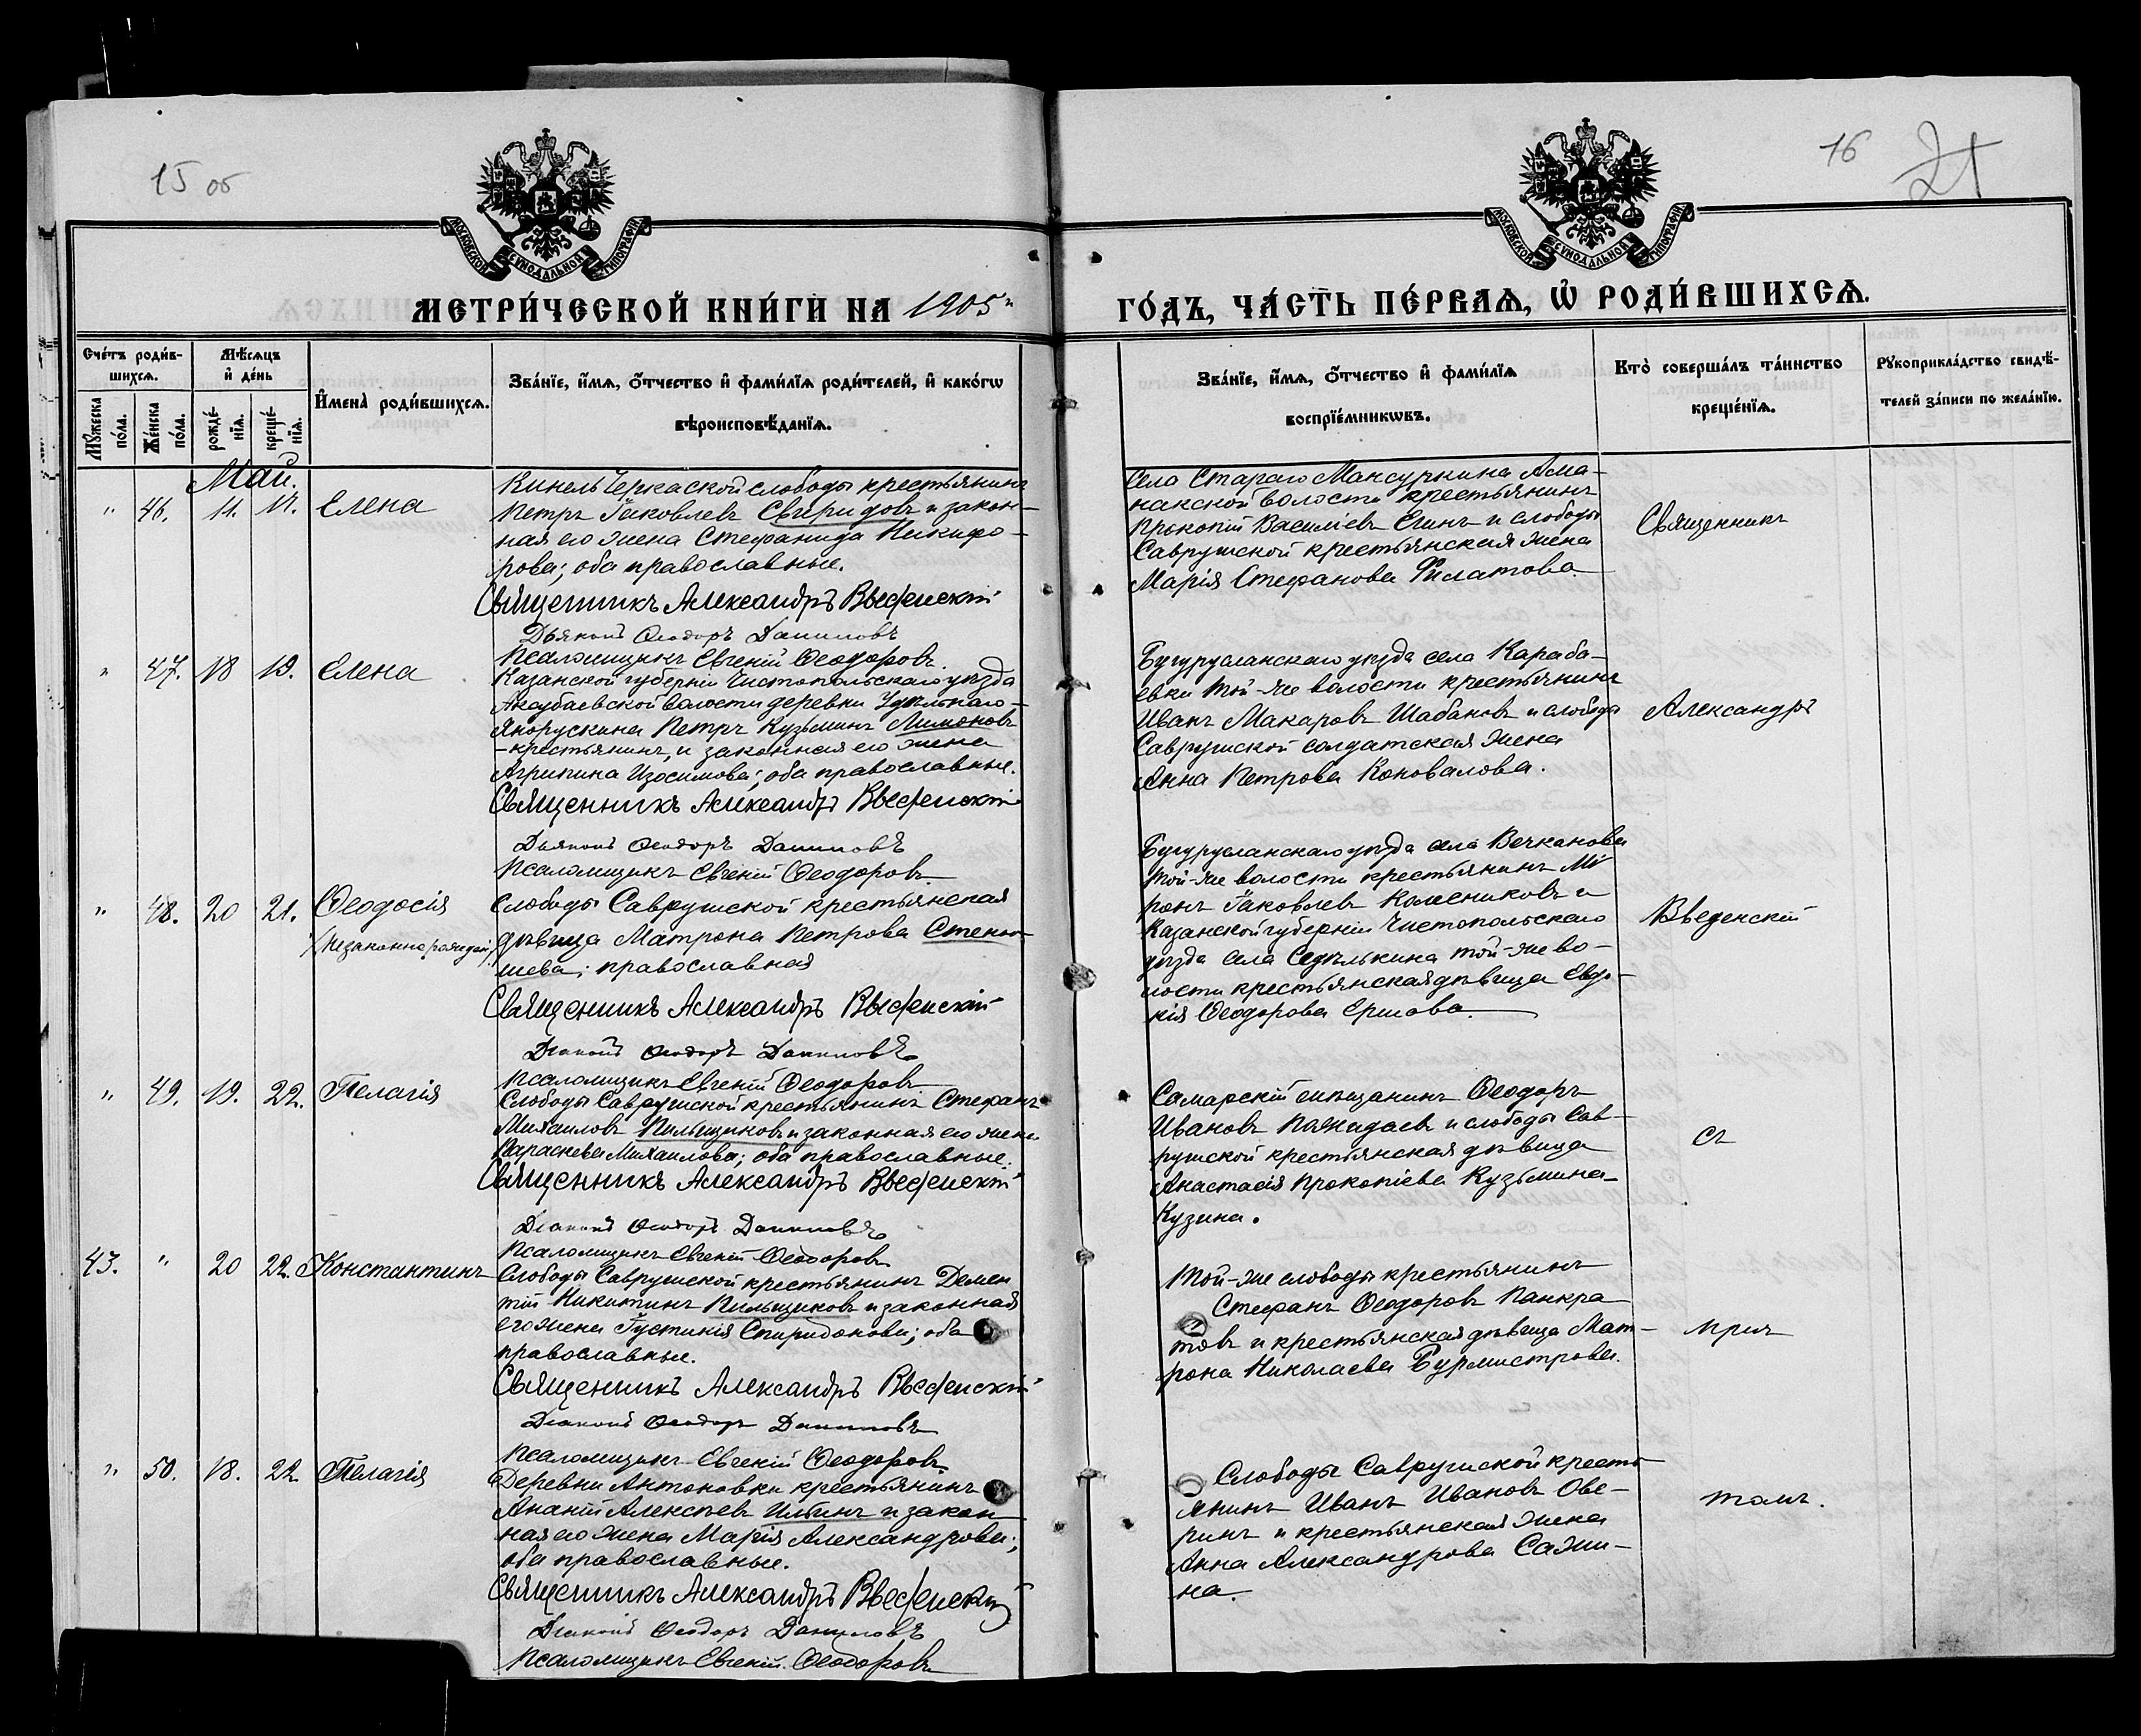 15 об
16
21
МОСКОВСКОЙ СѴНОДАЛЬНОЙ ТИПОГРАФІИ
МОСКОВСКОЙ СѴНОДАЛЬНОЙ ТИПОГРАФІИ
МЕТРИ́ЧЕСКОЙ КНИ́ГИ НА 1905 й
ГО́ДЪ, ЧА́СТЬ ПЕ́РВАѦ, Ѿ РОДИ́ВШИХСѦ.
Сче́тъ роди́в-
шихсѧ.
Мѣ́сѧцъ
и҆ де́нь
И҆мена̀ роди́вшихсѧ.
Зва́нїе, и҆́мѧ, ѻ҆́тчество и҆ фами́лїѧ роди́телей, и҆ како́гѡ
вѣроисповѣ́данїѧ.
Мꙋ́жеска
по́ла.
Же́нска
по́ла.
рожде́-
нїѧ.
креще́-
нїѧ.
Зва́нїе, и҆́мѧ, ѻ҆́тчество и҆ фами́лїѧ
воспрїе́мникѡвъ.
Кто̀ соверша́лъ та́инство
креще́нїѧ.
Рꙋкоприкла́дство свидѣ́-
телей за́писи по жела́нїю.
Май.
" 46. 11. 17. Елена
Кинель Черкаской слободы крестьянинъ
Петръ Іаковлевъ Свиридовъ и закон-
ная его жена Стефанида Никифо-
рова; оба православные.
Священникъ Александръ Введенскій
Дьяконъ Ѳеодоръ Даниловъ
Псаломщикъ Евгеній Ѳеодоровъ.
Села Стараго Мансуркина Ама-
накской волости крестьянинъ
Прокопій Василіевъ Егинъ и слободы
Саврушской крестьянская жена
Марія Стефанова Филатова.
Священникъ
" 47. 18 19. Елена
Казанской губерніи Чистопольскаго уѣзда
Аксубаевской волости деревни Удѣльнаго-
Янорускина Петръ Кузьминъ Лимоновъ
-крестьянинъ, и законная его жена
Агрипина Изосимова; оба православные.
Священникъ Александръ Введенскій
Дьяконъ Ѳеодоръ Даниловъ
Псаломщикъ Евгеній Ѳеодоровъ.
Бугурусланскаго уѣзда села Караба-
евки той-же волости крестьянинъ
Иванъ Макаровъ Шабановъ и слободы
Саврушской солдатская жена
Анна Петрова Коновалова.
Александръ
" 48. 20 21. Ѳеодосія
(незаконнорожден.)
Слободы Саврушской крестьянская
дѣвица Матрона Петрова Степа-
шева; православная
Священникъ Александръ Введенскій
Дьяконъ Ѳеодоръ Даниловъ
Псаломщикъ Евгеній Ѳеодоровъ
Бугурусланскаго уѣзда села Вечканова
той-же волости крестьянинъ Мѵ-
ронъ Іаковлевъ Колесниковъ и
Казанской губерніи Чистопольскаго
уѣзда села Седѣлькина той-же во-
лости крестьянская дѣвица Евдо-
кія Ѳеодорова Ершова.
Введенскій
" 49. 19. 22. Пелагія
Слободы Саврушской крестьянинъ Стефанъ
Михаиловъ Пильщиковъ и законная его жена
Параскева Михаилова; оба православные.
Священникъ Александръ Введенскій
Дьяконъ Ѳеодоръ Даниловъ
Псаломщикъ Евгеній Ѳеодоровъ
Самарскій мѣщанинъ Ѳеодоръ
Ивановъ Пожидаевъ и слободы Сав-
рушской крестьянская дѣвица
Анастасія Прокопіева Кузьмина-
Кузина.
съ
43. " 20 22. Константинъ
Слободы Саврушской крестьянинъ Демен
тій Никитинъ Пильщиковъ и законная
его жена Іустинія Спиридонова; оба
православные.
Священникъ Александръ Введенскій
Дьяконъ Ѳеодоръ Даниловъ
Псаломщикъ Евгеній Ѳеодоровъ
Той-же слободы крестьянинъ
Стефанъ Ѳеодоровъ Панкра-
товъ и крестьянская дѣвица Мат-
рона Николаева Бурмистрова.
прич
" 50. 18. 22. Пелагія
Деревни Антоновки крестьянинъ
Ананій Алексѣевъ Ильинъ и закон-
ная его жена Марія Александрова;
оба православные.
Священникъ Александръ Введенскій
Дьяконъ Ѳеодоръ Даниловъ
Псаломщикъ Евгеній Ѳеодоровъ
Слободы Саврушской кресть-
янинъ Иванъ Ивановъ Ове-
ринъ и крестьянская жена
Анна Александрова Сажи-
на.
томъ.